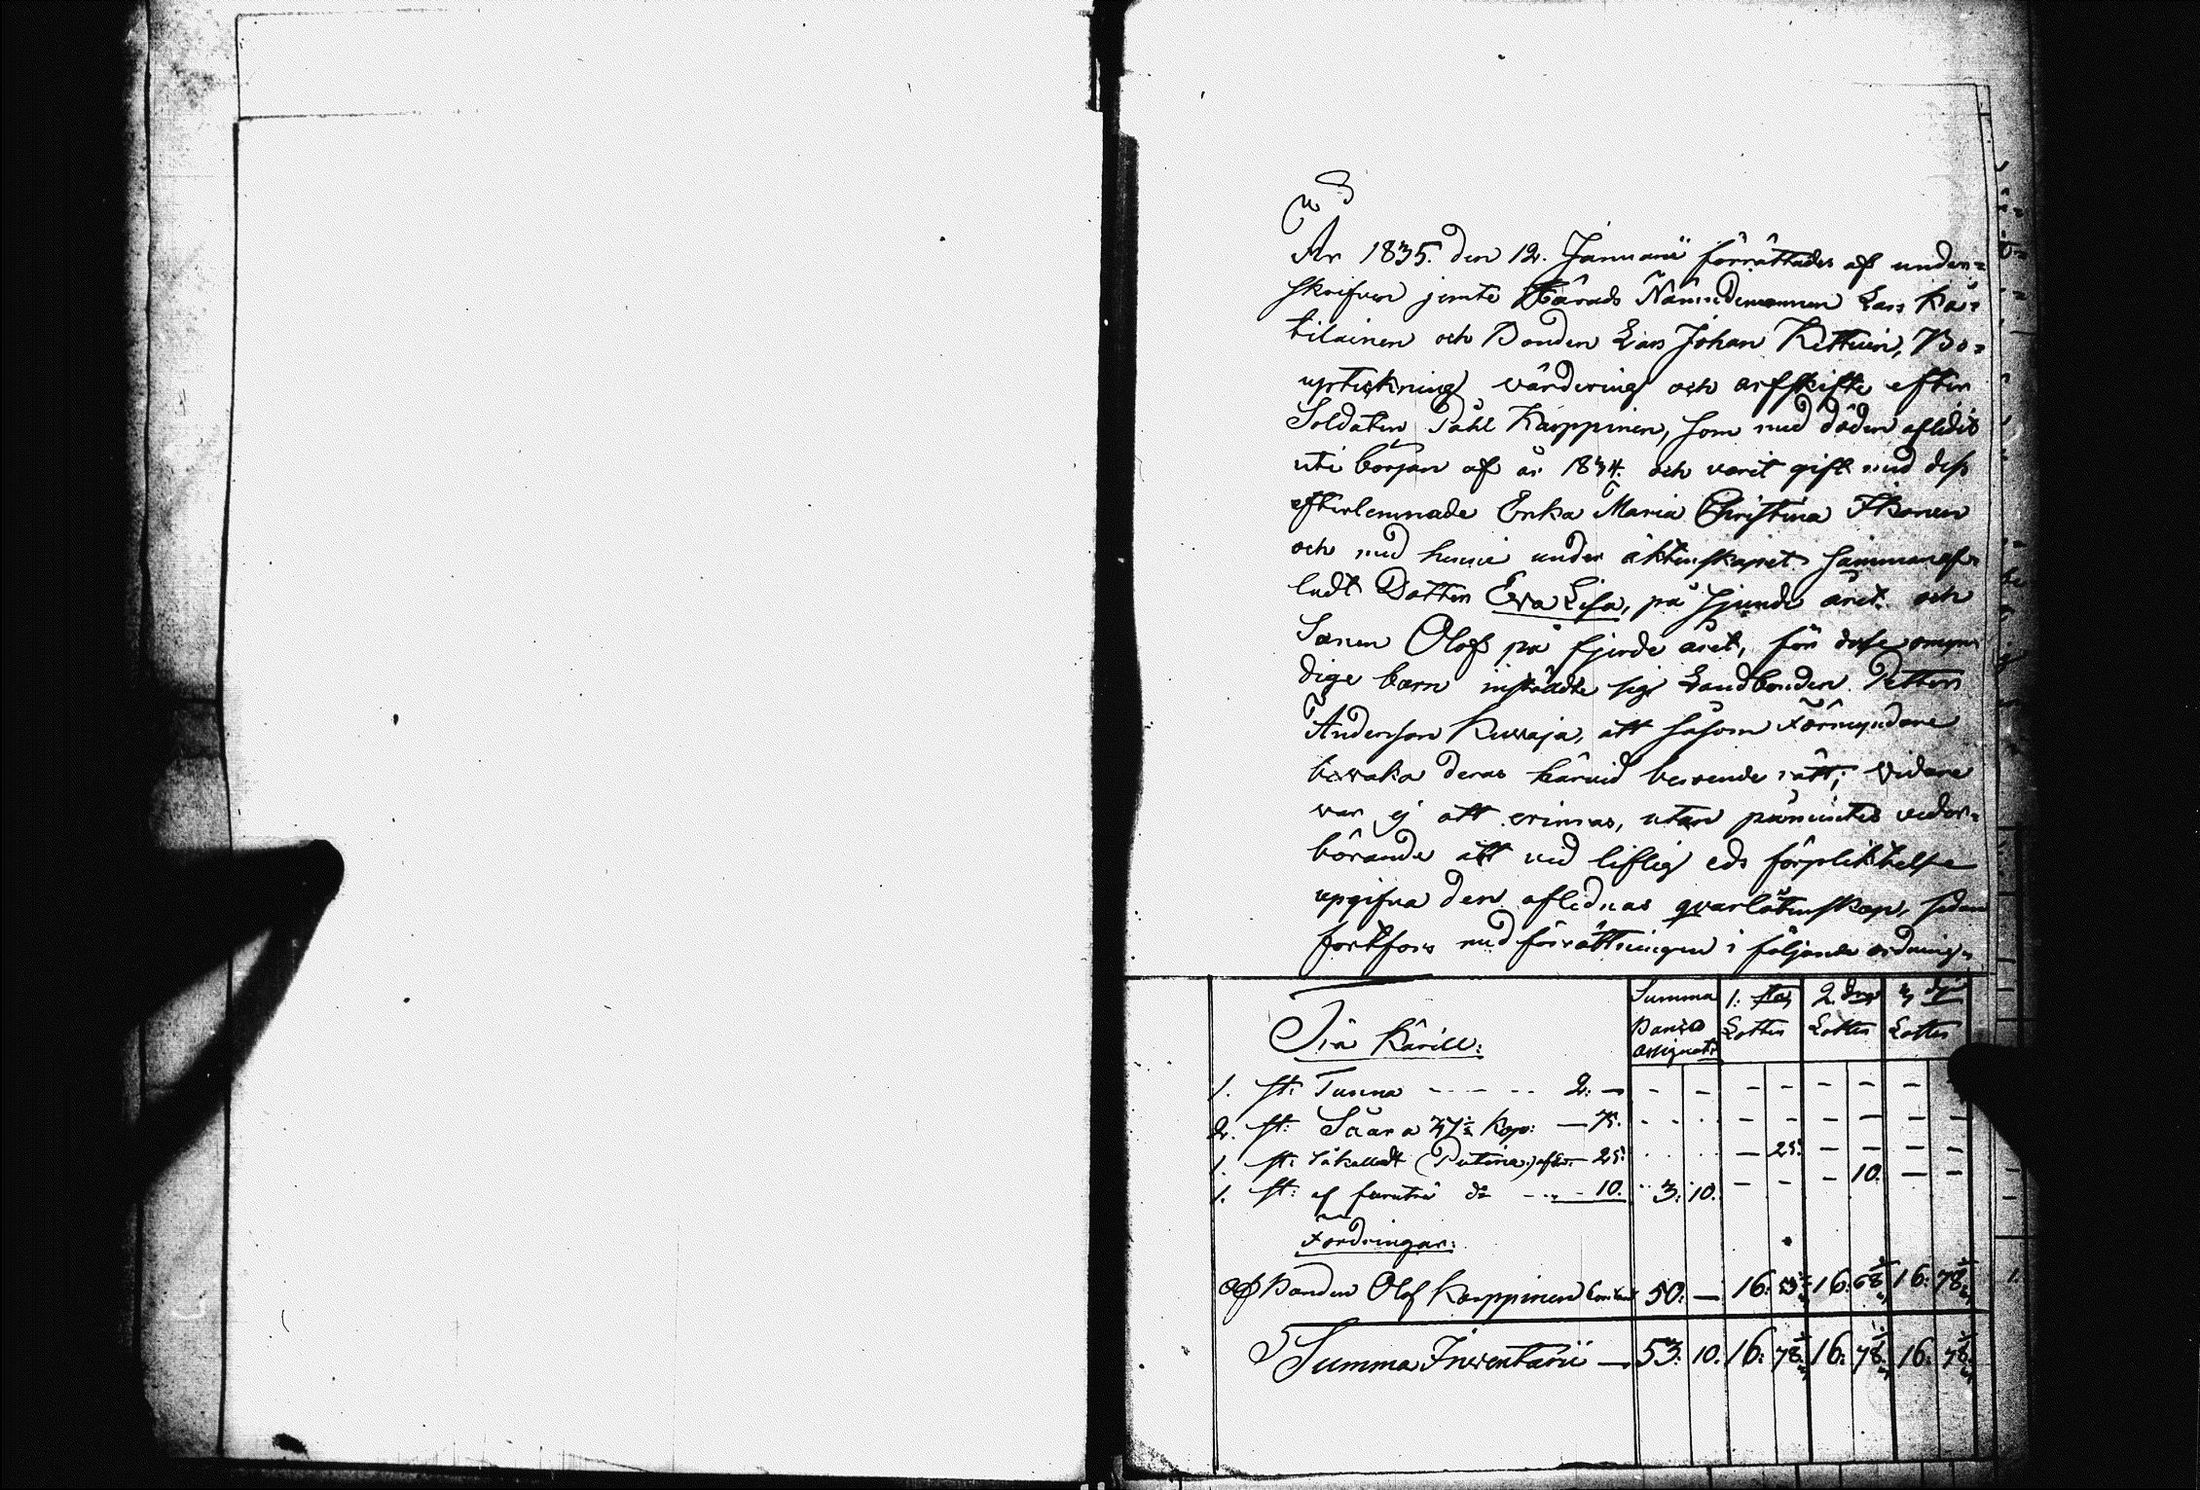 År 1835. den 12. Januarii förrättades af under=
skrifven jemte Härads Nämndemannen Lars Ka=
tilainen och Bonden Lars Johan Kettuin, Bo=
uptekning värdering och arfskifte efter
Soldaten Påhl Karppinen, som med döden aflidit
uti början af år 1834. och varit gift med dess
efterlemnade Enka Maria Christina Ikonen
och med henne under äktenskapet sammanaf=
ladt Dottren Eva Lisa, på sjunde året och
Sonen Olof på fjerde året, för desse omyn
dige barn instälde sig Landbonden Petter
Andersson Kuvaja, att såsom Förmyndare
bevaka deras härvid beroende rätt; vidare
var ej att erinras, utan påmintes veder=
börande att vid liflig eds förpliktelse
upgifva den aflidnas qvarlåtenskap, sedan
fortfors med förrättningen i följande ordning.
Summa 1: sta 2 dra 3 dje
Banco Lotten Lotten Lotten
assignat:
Trä Käril:
1. st: Tunna - - - - 2: — - - - - - - - -
2. st: Såar a 37½ kop: — 75. - - - - - - -
1. st: såkalladt (Putina) — 25. — 25. - - - -
1. st: af furuträ do - - - 10. 3: 10. - - - 10. - -
Fordringar:
af Bonden Olof Karppinen 50: — 16: 53 16: 68 16: 78
Summa Inventarii — 53: 10. 16: 78 16: 78 16: 78